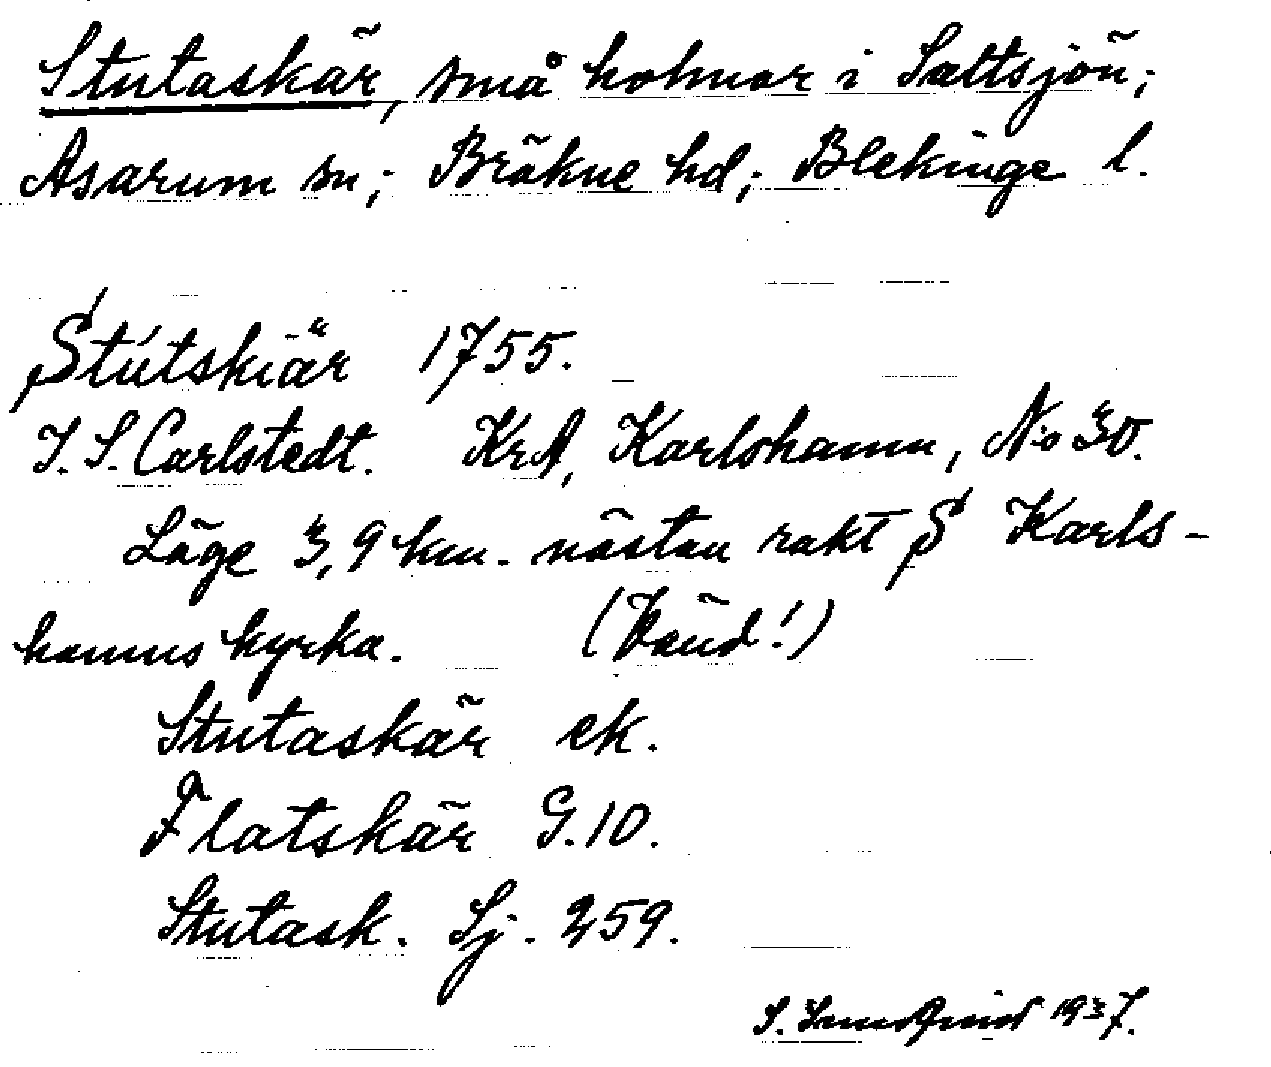 Stutaskär, små holmar i Saltsjön;
Asarum sn; Bräkne hd; Blekinge l.
Stutskiär 1755.
J. S. Carlstedt. KrA, Karlshamn, No 30.
Läge 3,9 km. nästan rakt S Karls-
hamns kyrka. (Vänd!)
Stutaskär ek.
Flatskär G.10.
Stutask. Sj. 259.
S. 1937.